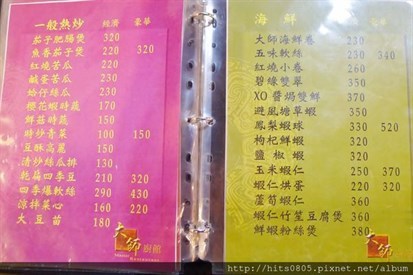 一般熱炒 經濟 豪華
茄子肥腸煲 320
魚香茄子煲 220 320
紅燒苦瓜 220
鹹蛋苦瓜 230
蛤仔絲瓜 230
櫻花蝦時蔬 170
鮮菇時蔬 150
時炒青菜 100 150
豆酥高麗 150
清炒絲瓜排 130
乾扁四季豆 210 320
四季爆軟絲 290 430
涼拌菜心 160 220
大豆苗 180
大師 廚館
海鮮
大師海鮮卷 230
五味軟絲 230 340
紅燒小卷 260
碧綠雙單 350
XO醬焗雙鮮 370
避風塘草蝦 350
鳳梨蝦球 330 520
枸杞鮮蝦 340
鹽椒蝦 340
玉米蝦仁 250 370
蝦仁烘蛋 220 320
蘆筍蝦仁 360
蝦仁竹笙豆腐煲 360
鮮蝦粉絲煲 380
大師 廚館
http://hits0805.pixnet.net/album